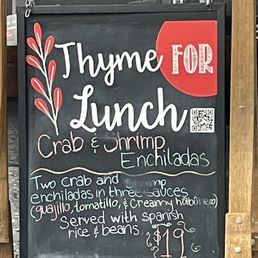 Thyme FOR
Lunch
Crab & Shrimp
Enchiladas
Two crab and shrimp
enchiladas in three sauces
(guajillo, tomatillo, & creamy habanero)
Served with spanish
rice & beans.
$19